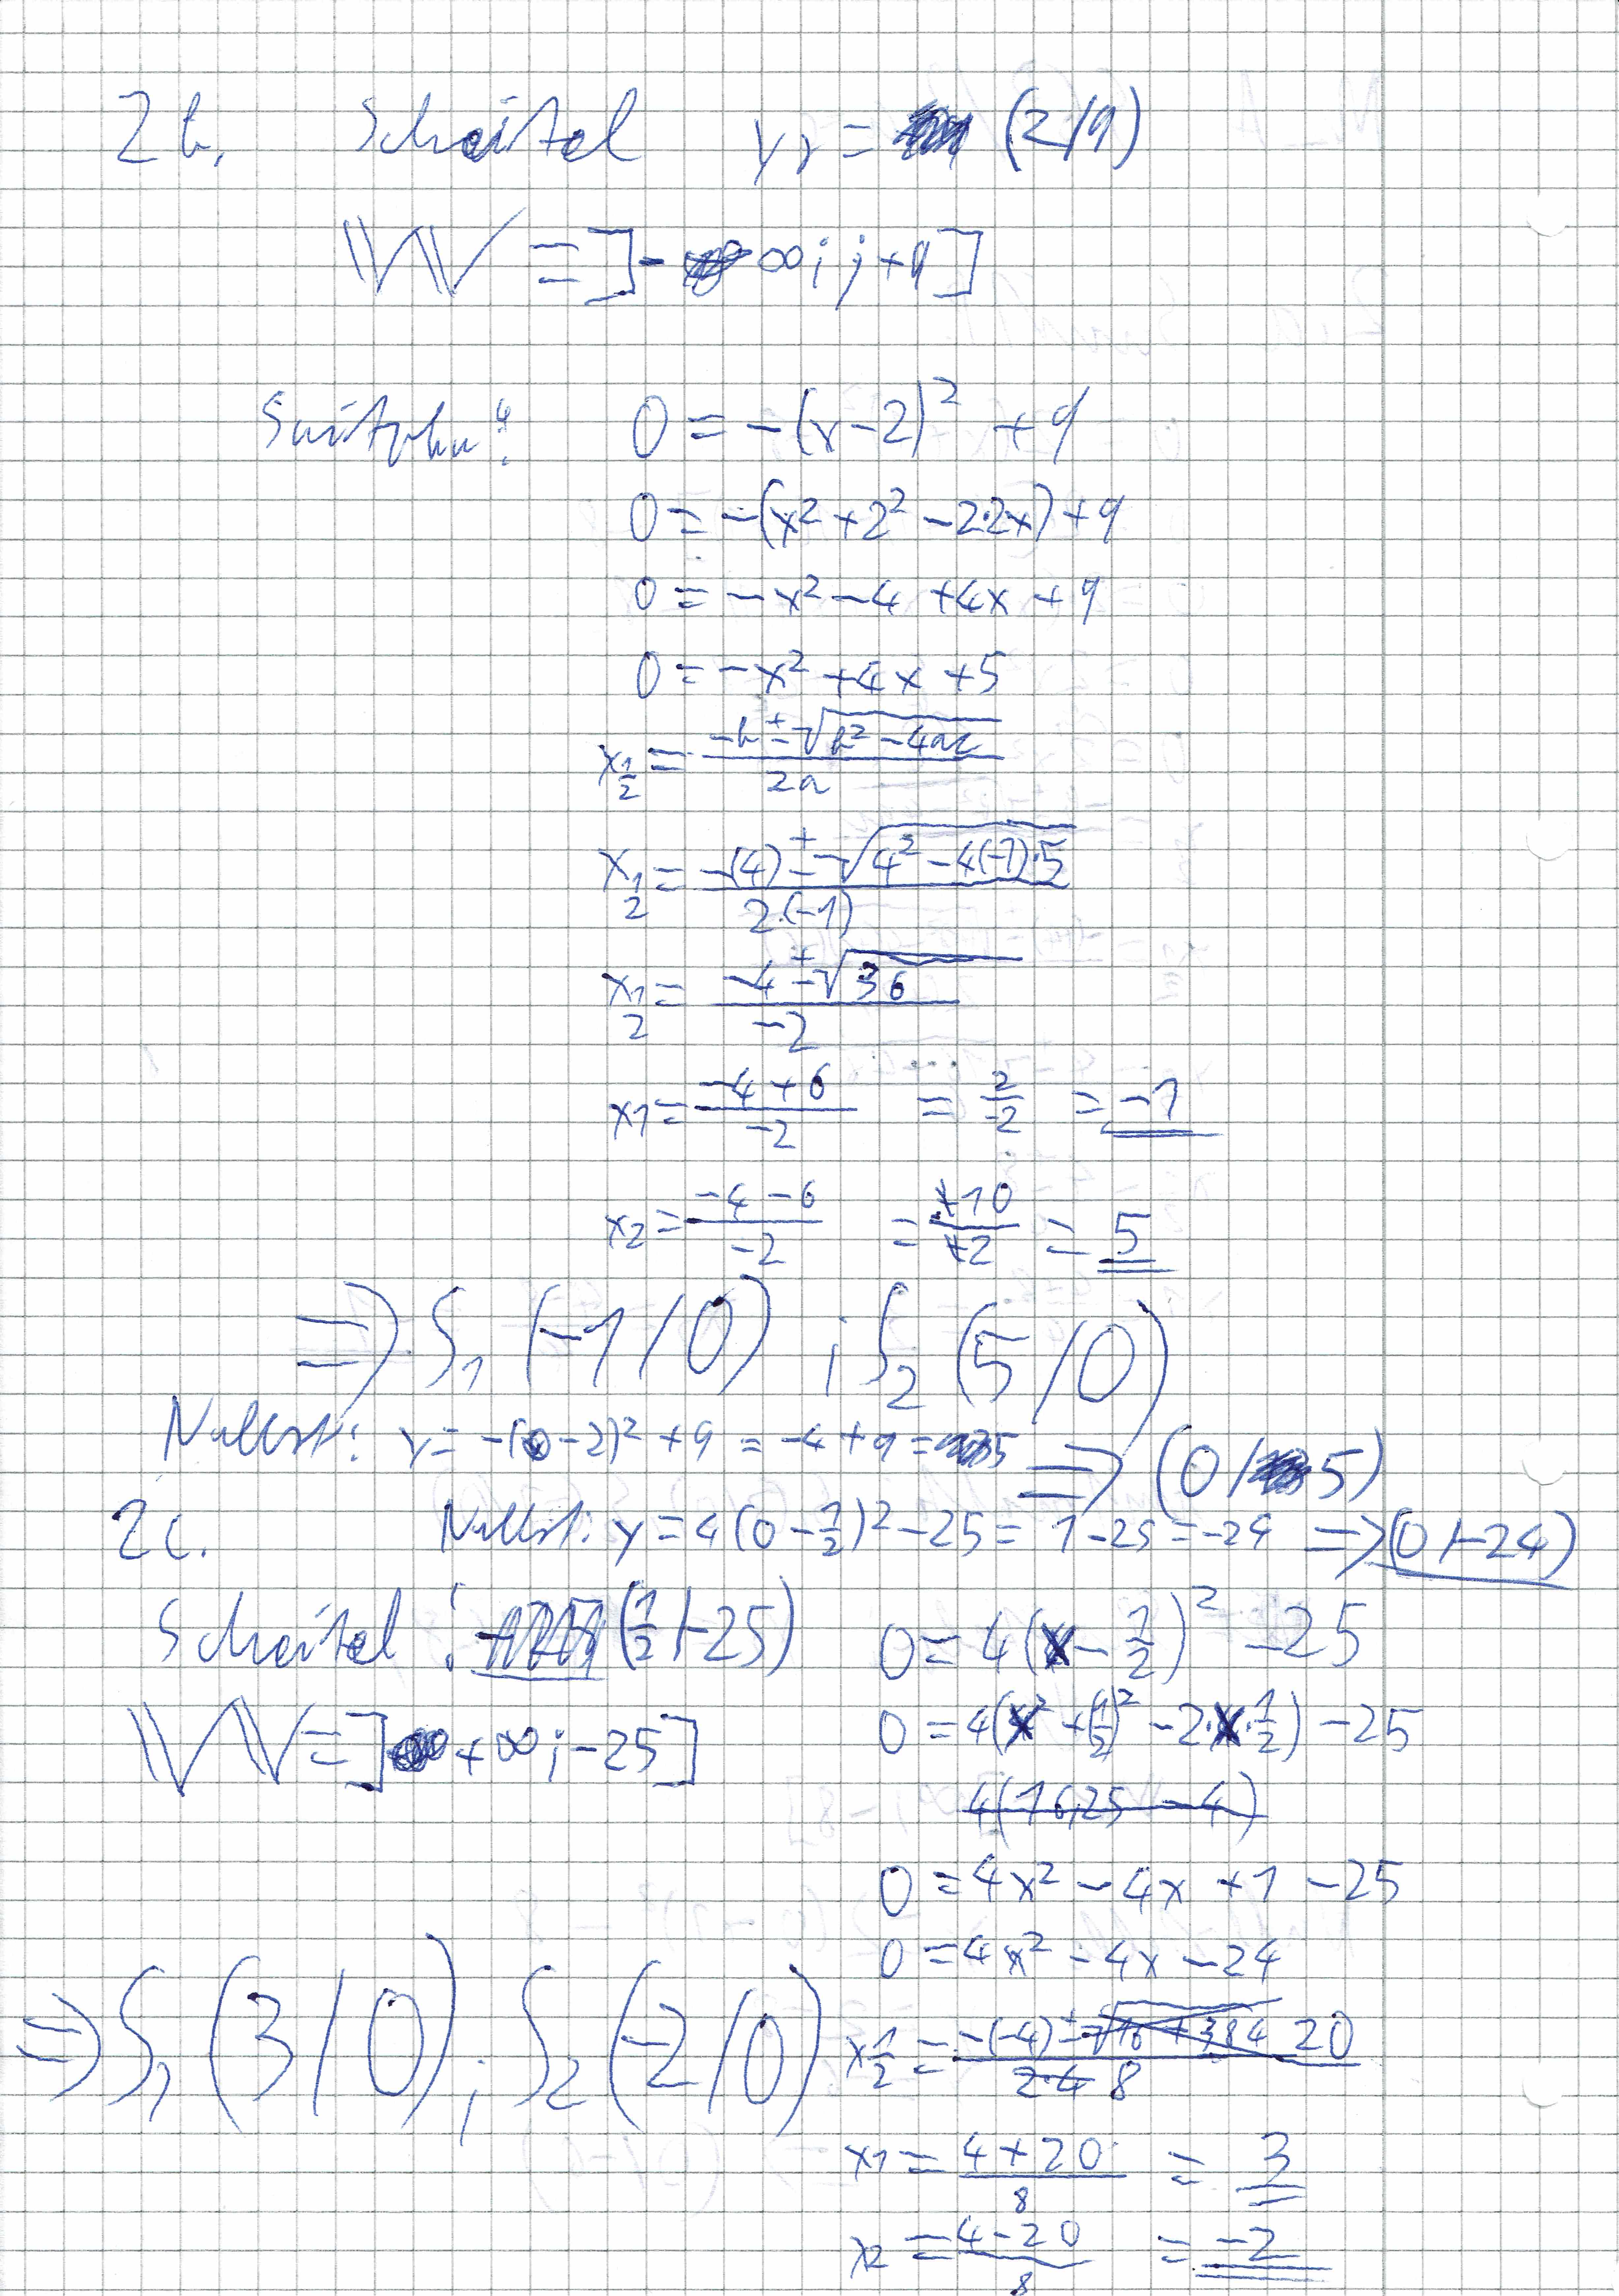 2b. Scheitel yr = (2/9)
W = ]-∞; ; +9]
0 = -(x-2)² + 9
0 = -(x² + 2² - 2·2x) + 9
0 = -x² - 4 + 4x + 9
0 = -x² + 4x + 5
x1/2 = (-b ± √(b² - 4ac)) / 2a
x1/2 = (-(4) ± √(4² - 4(-1)·5)) / 2·(-1)
x1/2 = (-4 ± √36) / -2
x1 = (-4 + 6) / -2 = 2/-2 = -1
x2 = (-4 - 6) / -2 = +10/+2 = 5
⇒ S1 (-1/0) ; S2 (5/0)
Nullst: y = -(0-2)² + 9 = -4 + 9 = 5 ⇒ (0/5)
2c. Nullst: y = 4(0 - 1/2)² - 25 = 1 - 25 = -24 ⇒ (0/-24)
Scheitel: (1/2/-25)
W = ]+∞; -25]
0 = 4(x - 1/2)² - 25
0 = 4(x² + (1/2)² - 2·x·1/2) - 25
4(16,25 - 4)
0 = 4x² - 4x + 1 - 25
0 = 4x² - 4x - 24
x1/2 = (-(-4) ± √(16 + 384) 20) / 2·4 8
x1 = (4 + 20) / 8 = 3
x2 = (4 - 20) / 8 = -2
⇒ S1 (3/0) ; S2 (-2/0)